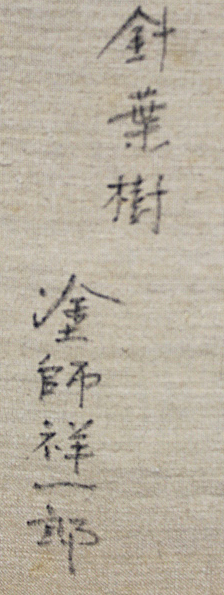 針葉樹
塗師祥一郎